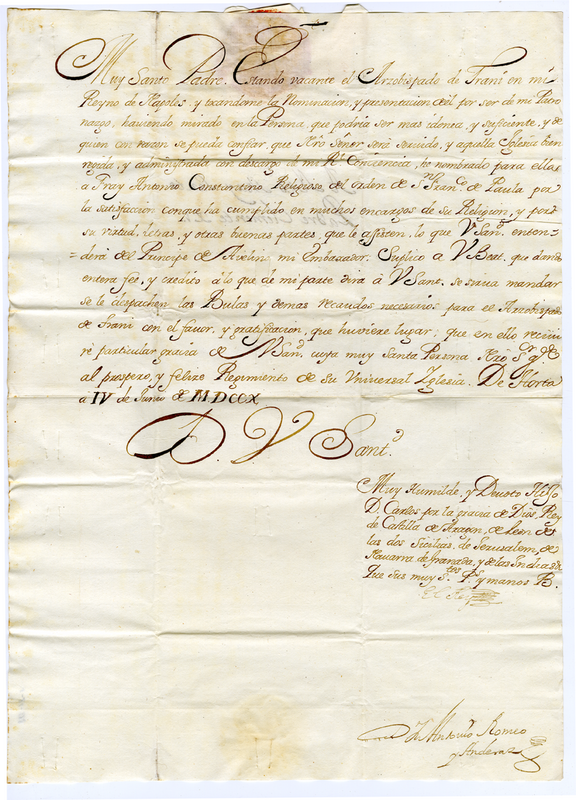 Muy Santo Padre. Estando vacante el Arzobispado de Trani en mi
Reyno de Napoles, y tocandome la Nominacion, y presentacion del por ser de mi Patro
nazgo, haviendo mirado en la Persona, que podria ser mas idonea, y suficiente, y de
quien con razon se pueda confiar, que Nro Señor será servido, y aquella Iglesia bien
regida, y administrada con descargo de mi Rl. Conciencia, he nombrado para ella
a Fray Antonio Constantino Religioso del orden de Sn. Franco. de Paula por
la satisfacion con que ha cumplido en muchos encargos de su Religion, y por
su virtud, letras, y otras buenas partes, que le assisten, lo que V. Sand. enten=
derá del Principe de Avelin mi Embaxador. Suplico a V Beat. que dando
entera fee, y credito á lo que de mi parte dirá a V Sant. se sirva mandar
se le despachen las Bulas y demas recaudos necesarios para el Arzobispado
de Trani con el favor, y gratificacion, que huviere lugar; que en ello recivi
ré particular gracia de V San.d cuya muy Santa Persona Nro Sr. gde.
al prospero, y felize Regimiento de su Universal Yglesia. De Horta
á IV de Junio de MDCCX
D V Sant.d
Muy Humilde, y Devoto Hijo
D. Carlos por la gracia de Dios, Rey
de Castilla de Aragon, de Leon de
las dos Sicilias, de Jerusalem, de
Navarra de Granada, y de las Indias &
Que sus muy S.tos P.s y manos B.
El Rey
Dn Antonio Romeo
y Anderaz